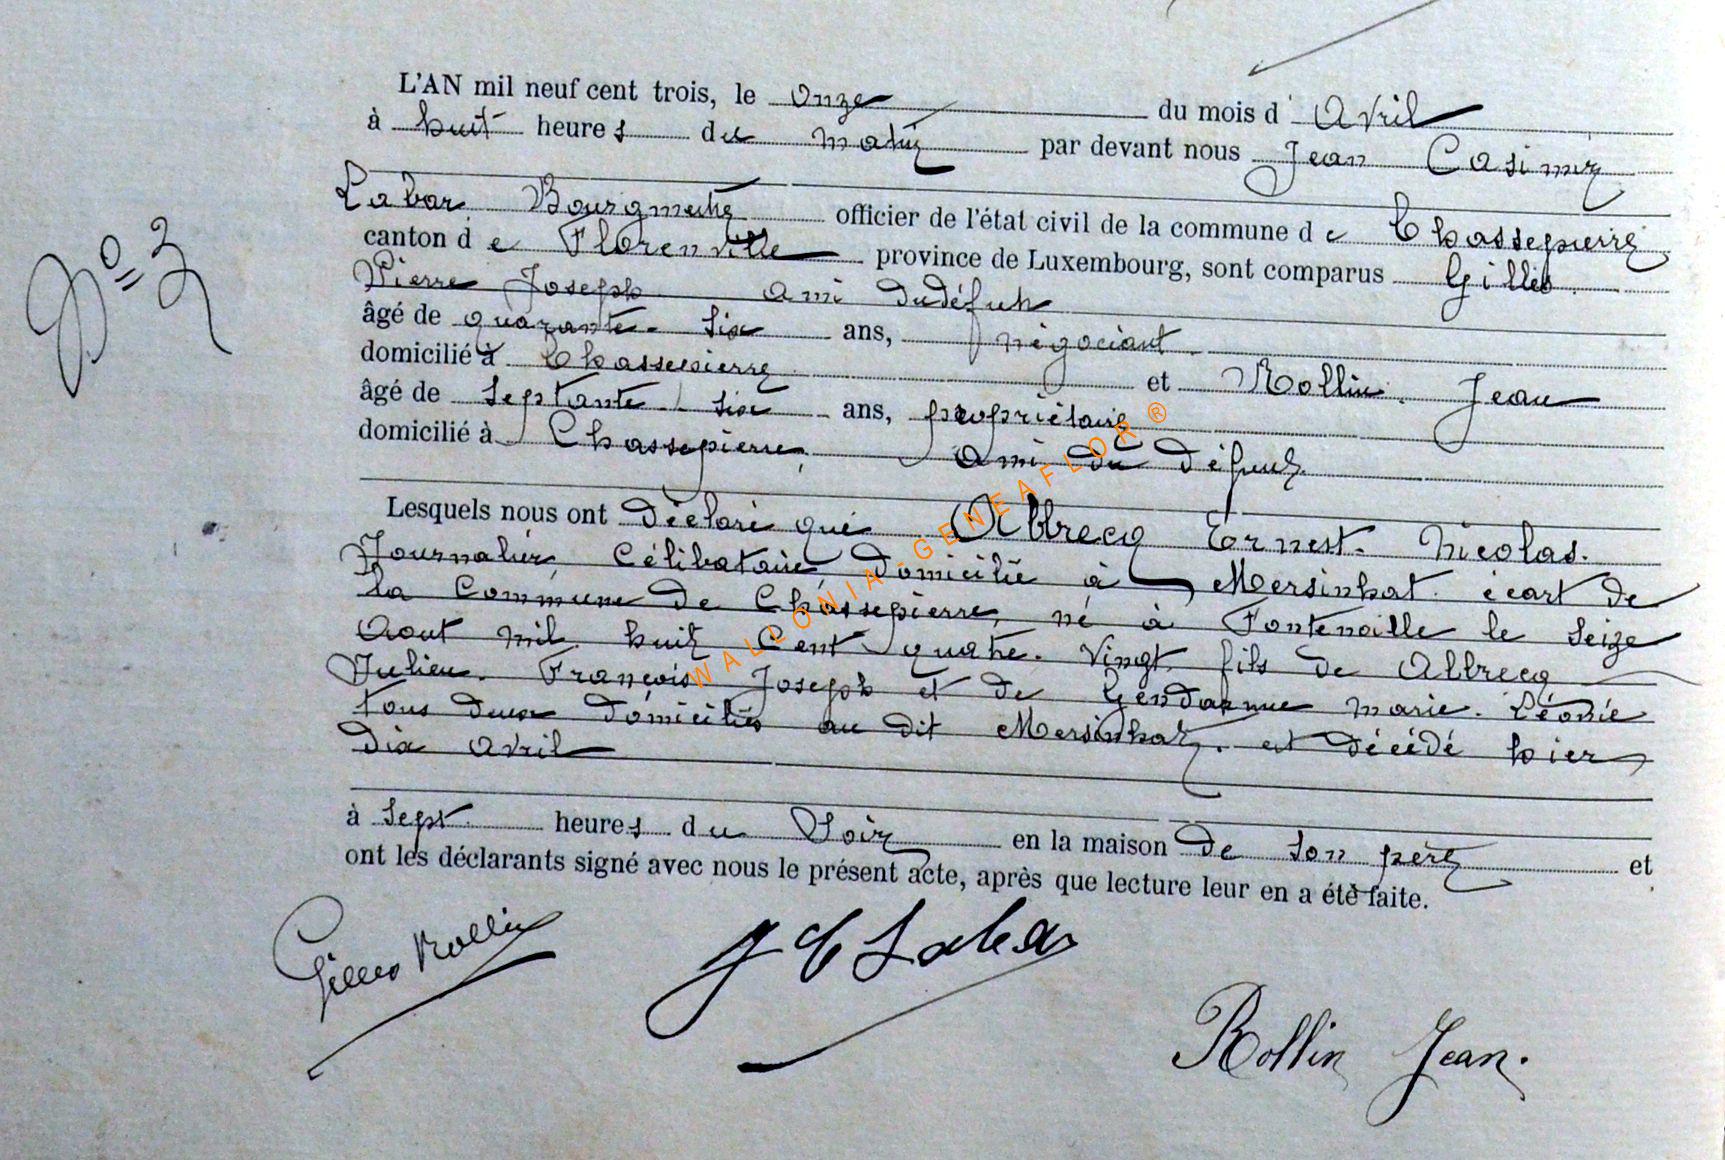 L'AN mil neuf cent trois, le onze du mois d' Avril
à huit heures du matin par devant nous Jean Casimir
Labar Bourgmestre officier de l'état civil de la commune de Chassepierre
canton de Florenville province de Luxembourg, sont comparus Gilles
Pierre Joseph ami du défunt
âgé de quarante-six ans, négociant
domicilié à Chassepierre et Rollin Jean
âgé de septante six ans, propriétaire
domicilié à Chassepierre, ami du défunt.
Lesquels nous ont déclaré que Albrecq Ernest Nicolas.
Journalier, Célibataire, domicilié à Mersinhat écart de
la Commune de Chassepierre, né à Fontenoille le seize
Aout mil huit Cent quatre-Vingt fils de Albrecq
Julien François Joseph et de Gendarme Marie-Léonie
tous deux domiciliés au dit Mersinhat. et décédé hier
dix avril
à sept heures du soir en la maison de son père et
ont les déclarants signé avec nous le présent acte, après que lecture leur en a été faite.
N° 3
Gilles Rollin
J C Labar
Rollin Jean.
WALLONIA-GENEAFLOR®